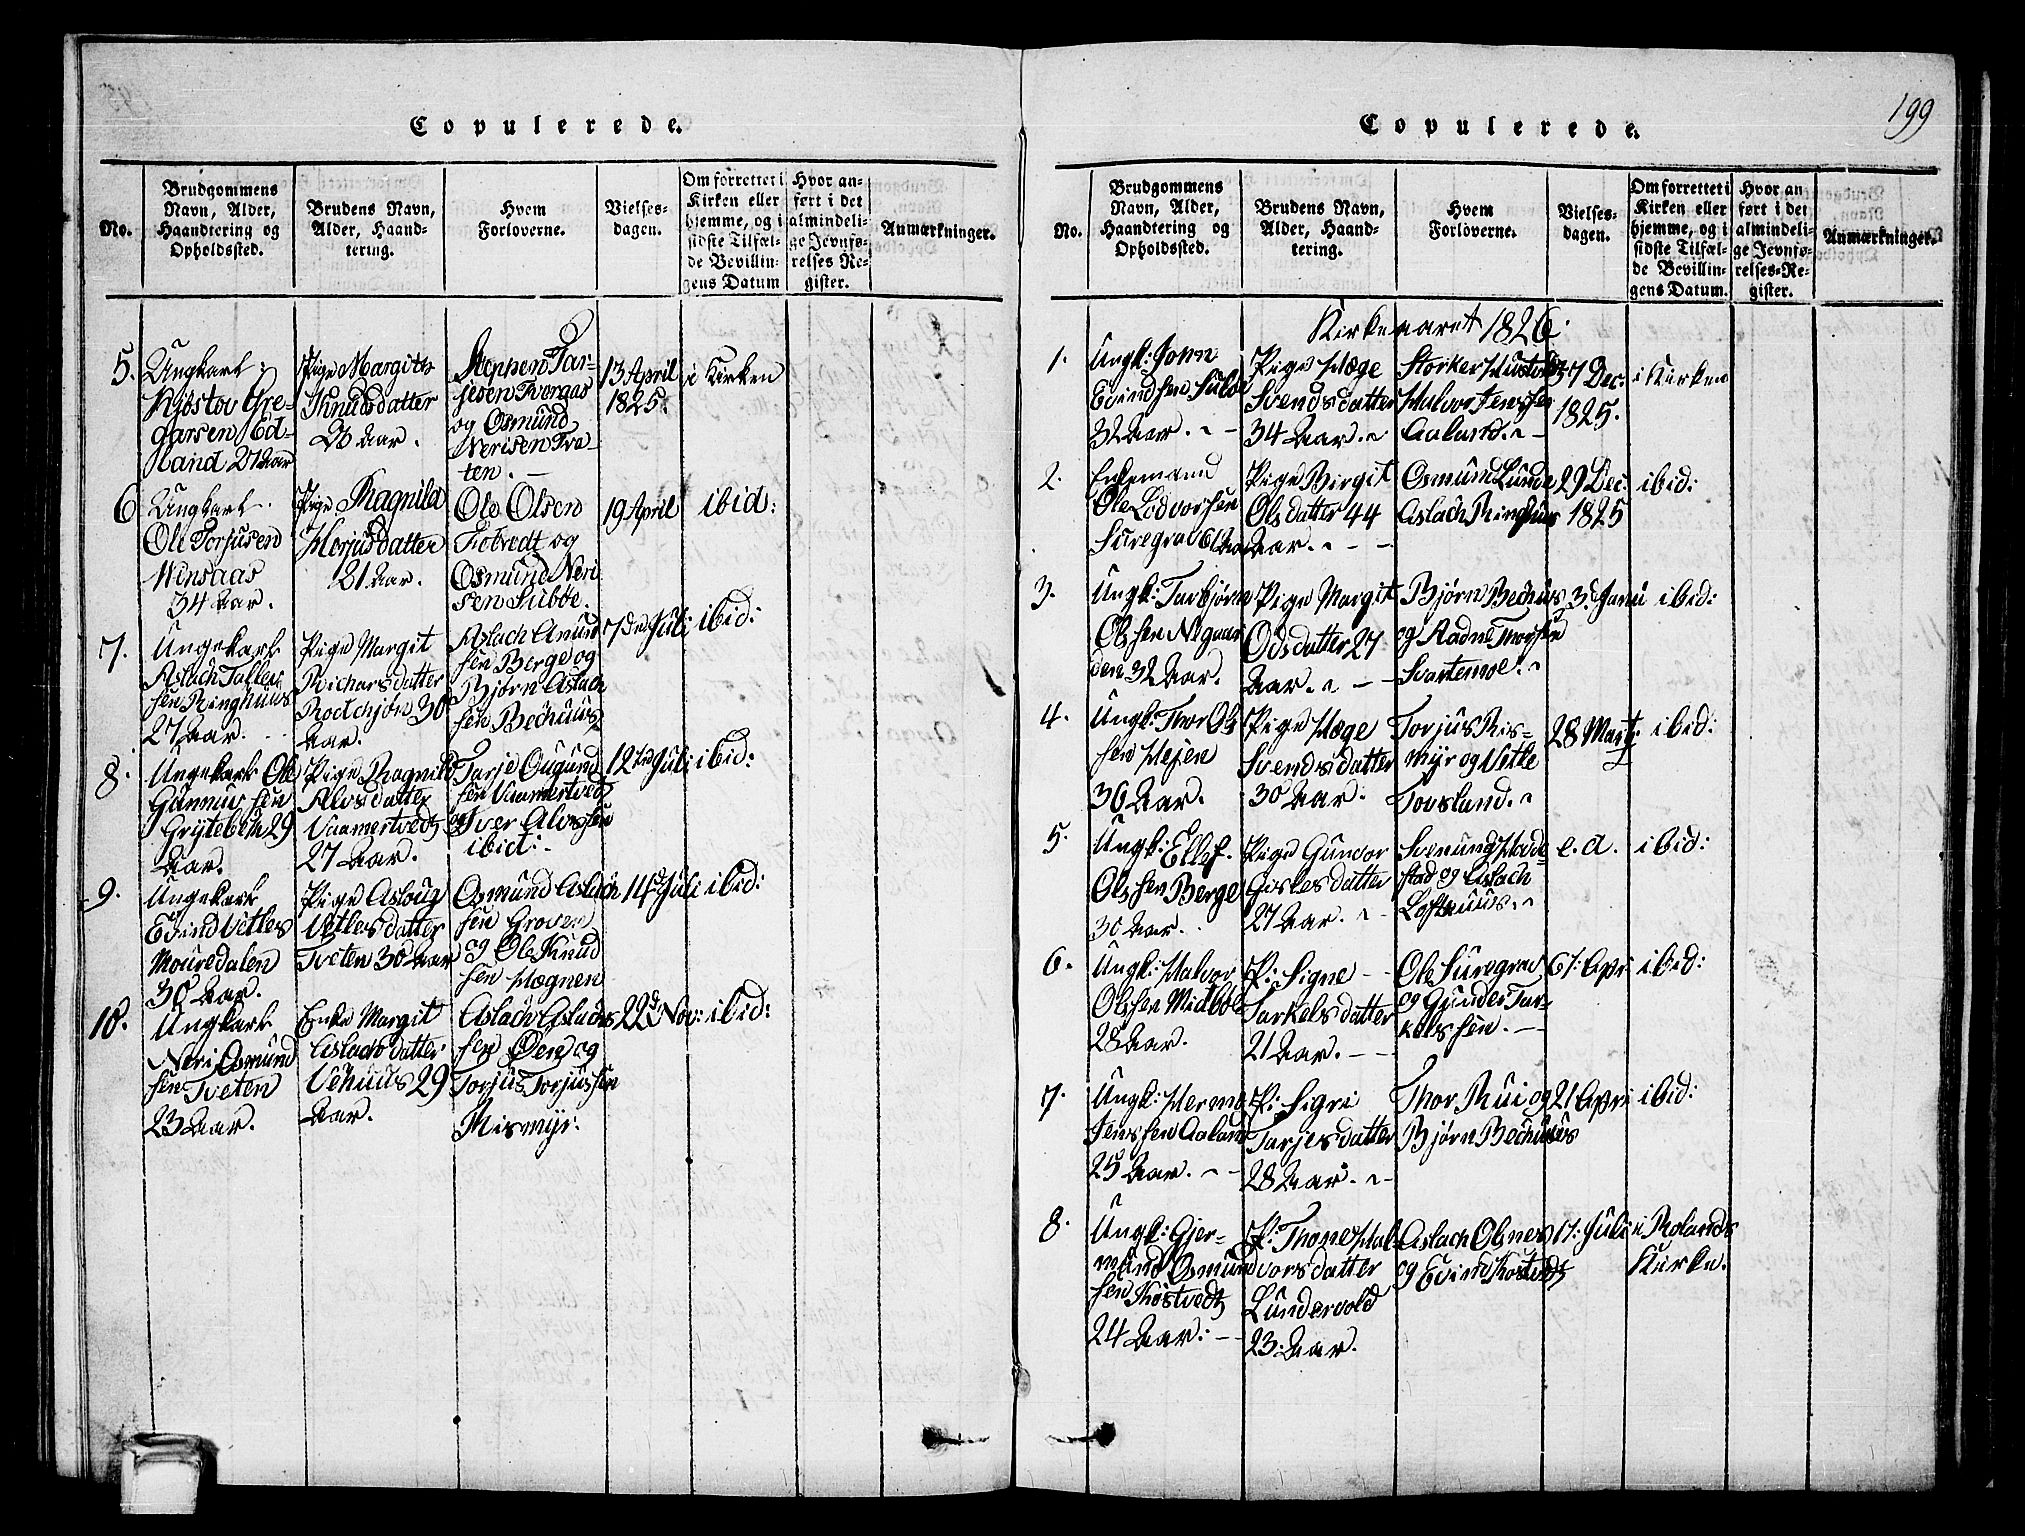 199
Copulerede.
No.
Brudgommens
Navn, Alder,
Haandtering og
Opholdssted.
Brudens Navn,
Alder, Haand-
tering.
Hvem
Forloverne.
Vielses-
dagen.
Om forrettet i
Kirken eller
hjemme, og i
sidste Tilfæl-
de Bevillin-
gens Datum
Hvor an-
ført i det
almindeli-
ge Jevnfø-
relses Re-
gister.
Anmærkninger.
5.
Ungkarl
Kjøstov Gre-
garsen Ed-
land 27 Aar
Pige Margith
Knudsdatter
26 Aar.
Steppen Tar-
jesen Tvergas
og Osmund
Nerisen Tve-
ten.
13 April
1825
i Kirken
6
Ungkarl
Ole Torjusen
Winsaas
34 Aar.
Pige Ragnild
Horjusdatter
21 Aar.
Ole Olsen
Fitvedt og
Osmund Neri
sen Subøe.
19 April
ibid:
7.
Ungekarl
Aslach Tallev
sen Ringhuus
27 Aar.
Pige Margit
Richarsdatter
Rodtchjøn 30
Aar.
Aslach Anund
sen Berge og
Bjørn Aslach
sen Bechuus
7de Juli
ibid:
8.
Ungekarl Ole
Gunnuf sen
Grytebek 29
Aar.
Pige Ragnild
Alvsdatter
Vaamertvedt
27 Aar.
Tarje Ougund
sen Vaamertvedt
og Iver Alvssen
ibid:
12te Juli
ibid:
9.
Ungekarl
Evind Vetles
Mouredalen
30 Aar.
Pige Asloug
Vetlesdatter
Tveten 30 Aar
Osmund Aslach
sen Groven
og Ole Knud
sen Mægnen
14 Juli
ibid:
10.
Ungkarl
Neri Osmund
sen Tveten
23 Aar.
Enke Margit
Aslachsdatter
Vehuus 29
Aar.
Aslach Aslachs
sen Øen og
Torjus Torjussen
Rismyr.
22d Nov:
ibid:
Copulerede.
No.
Brudgommens
Navn, Alder,
Haandtering og
Opholdssted.
Brudens Navn,
Alder, Haand-
tering.
Hvem
Forloverne.
Vielses-
dagen.
Om forrettet i
Kirken eller
hjemme, og i
sidste Tilfæl-
de Bevillin-
gens Datum.
Hvor an
ført i det
almindeli-
ge Jevnfø-
relses-Re-
gister.
Anmærkninger.
Kirkeaaret 1826.
1.
Ungk: John
Evindsen Subøe
32 Aar.
Pige Hæge
Svendsdatter
34 Aar.
Storker
Halvor Jenssen
Aalund.
Dec:
1825.
i Kirken
2.
Enkemand
Ole Lodvorsen
Suregrav 61 Aar
Pige Birgit
Olsdatter 44
Aar.
Osmund Lunde
Aslach Ringhus
29 Dec:
1825
ibid:
3.
Ungk: Tarbjørn
Olssen Nigaar
den 32 Aar.
Pige Margit
Odsdatter 27
Aar.
Bjørn Bechuus
og Aadne Thorssen
Svartemoe.
3d Janu
ibid:
4.
Ungk: Thor Ols
sen Mejen
36 Aar.
Pige Hæge
Svendsdatter
30 Aar.
Torjus Ris-
myr og Vetle
Tovsland.
28 Marti
ibid:
5.
Ungk: Ellef
Olssen Berge
30 Aar.
Pige Gunvor
Gislesdatter
27 Aar.
Svenung Hovde-
stad og Aslach
Lofthuus.
e. d.
ibid:
6.
Ungk: Halvor
Olssen Midbøe
28 Aar.
P: Signe
Tarkelsdatter
21 Aar.
Ole Suregrav
og Gunder Tar-
kelssen.
6t: Apri
ibid:
7.
Ungk: Hermo
Jenssen Aalund
25 Aar.
P: Sigri
Tarjesdatter
28 Aar.
Thor Rui og
Bjørn Bechuus
21 Apri
ibid:
8.
Ungk: Gjer-
mund Osmund
sen Kostvedt
24 Aar:
P: Thone Hal-
vorsdatter
Lundevold
23 Aar.
Aslach Obnes
og Evind Kostvedt
17: Juli
i Rolands
Kirke.